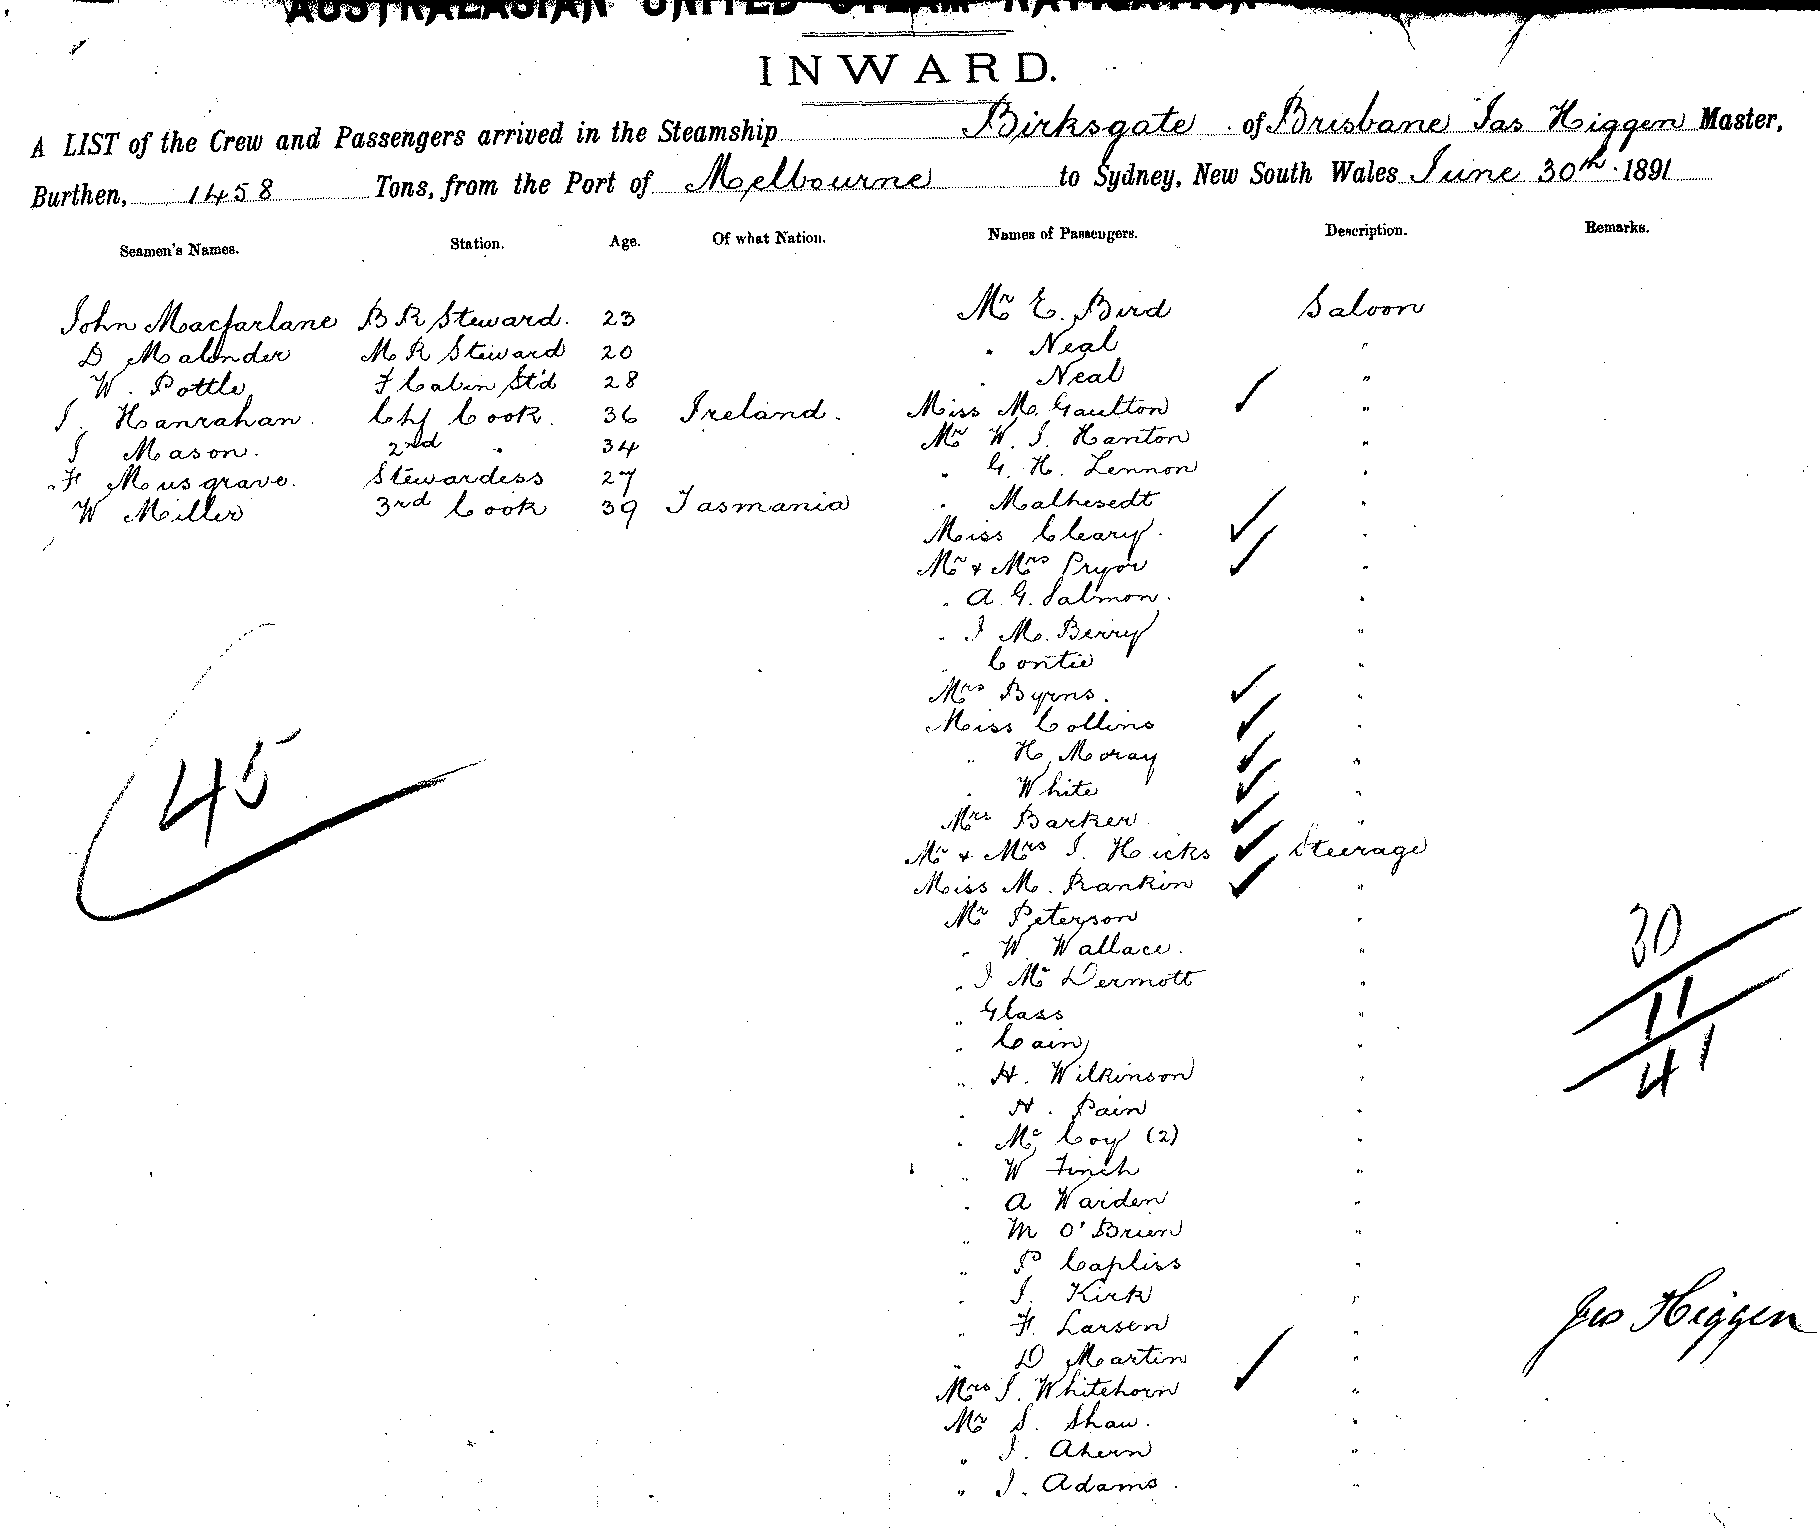 AUSTRALASIAN UNITED STEAM NAVIGATION
INWARD.
A LIST of the Crew and Passengers arrived in the Steamship Birksgate of Brisbane Jas Higgen Master,
Burthen, 1458 Tons, from the Port of Melbourne to Sydney, New South Wales June 30th 1891
Seamen's Names. Station. Age. Of what Nation. Names of Passengers. Description. Remarks.
John Macfarlane B R Steward. 23
D Malander M R Steward 20
W. Pottle F Cabin St'd 28
J. Hanrahan Chf Cook. 36 Ireland.
J Mason. 2nd " 34
F Musgrave. Stewardess 27
W Miller 3rd Cook 39 Tasmania
Mr E. Bird Saloon
" Neal "
" Neal "
Miss M. Gaulton ✓ "
Mr W. J. Hanton "
" G. H. Lennon "
" Malhesedt "
Miss Cleary. ✓ "
Mr & Mrs Pryor ✓ "
" A. G. Salmon. "
" J M. Berry "
" Contie "
Mrs Byrns. ✓ "
Miss Collins ✓ "
" H. Moray ✓ "
" White ✓ "
Mrs Barker ✓ "
Mr & Mrs J. Hicks ✓ Steerage
Miss M. Rankin ✓ "
Mr Peterson "
" W. Wallace. "
" J McDermott "
" Glass "
" Cain "
" H. Wilkinson "
" H. Pain "
" McCoy (2) "
" W Finch "
" A Warden "
" M O'Brien "
" P Capliss "
" J. Kirk "
" F. Larsen "
" D Martin "
Mrs J. Whitehorn ✓ "
Mr S. Shaw. "
" J. Ahern "
" J. Adams. "
45
30
11
41
Jas Higgen